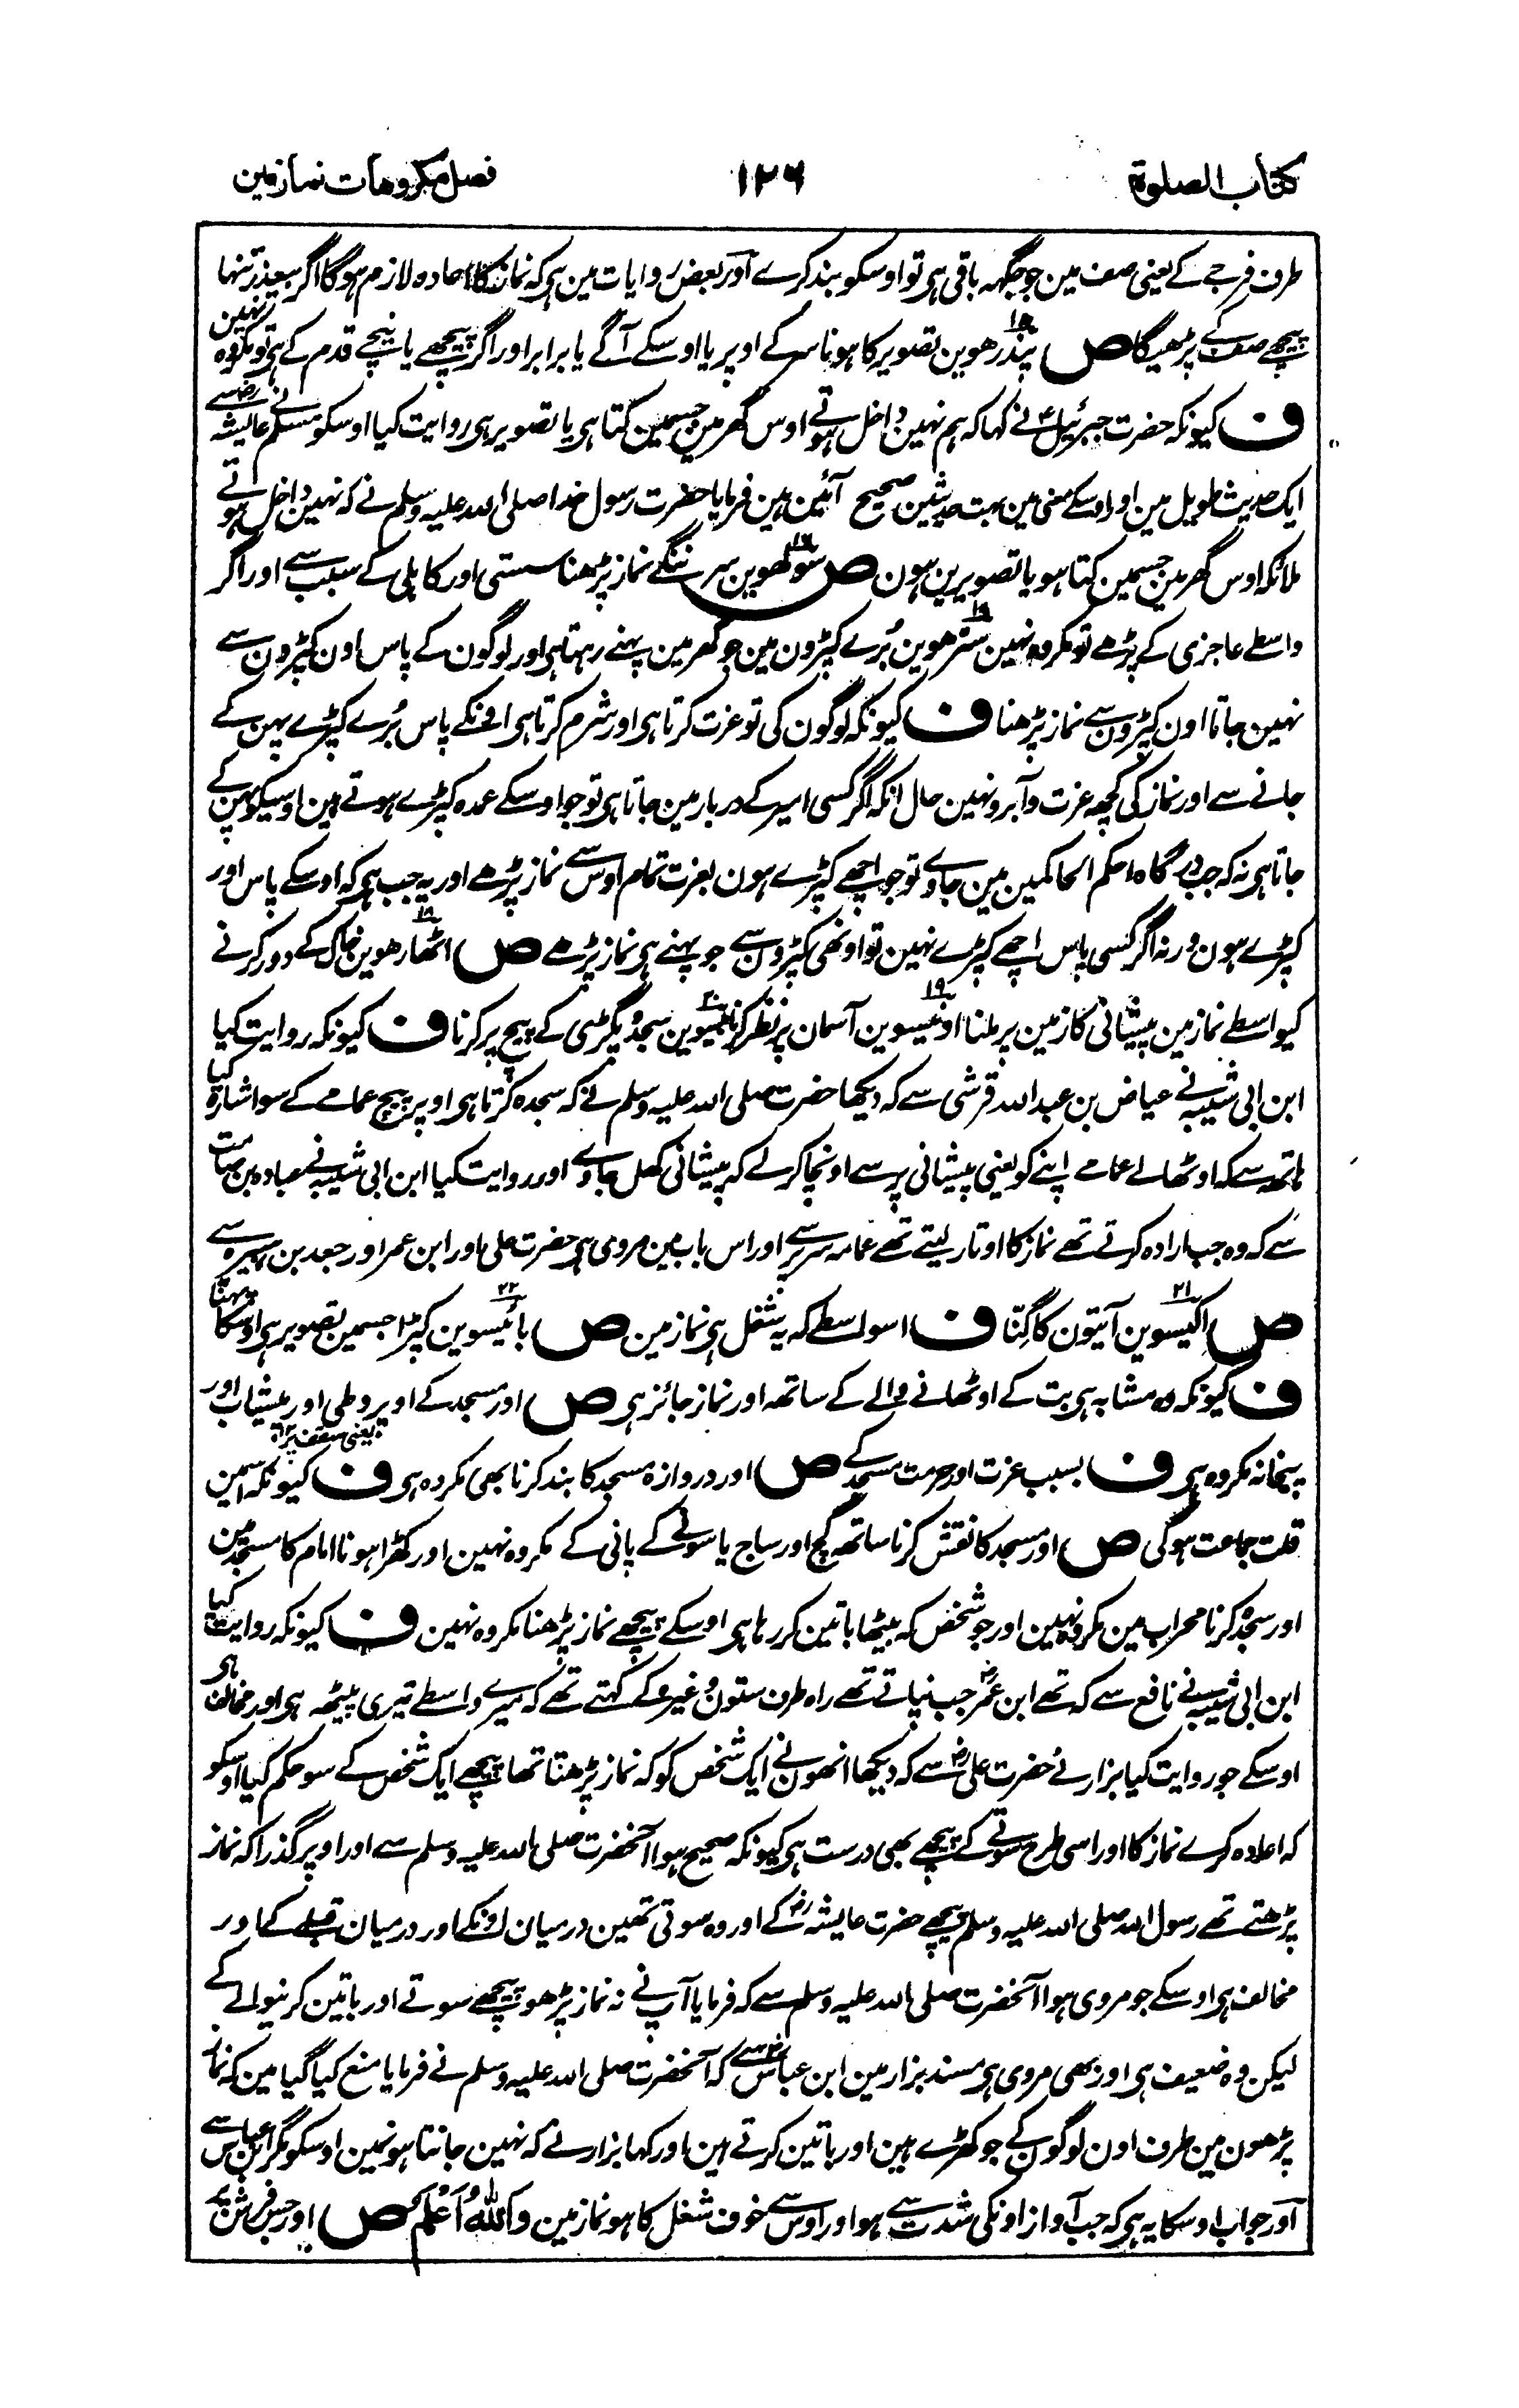 کتاب الصلوة
۱۲۶
فصل مکروهات نماز مین
طرف فرجے کے یعنی صف مین جو جگہہ باقی ہی تو اوسکو بند کرے اور بعض روایات مین ہی کہ نماز کا اعادہ لازم ہوگا اگر بیعذر تنہا
پیچھے صف کے پڑھیگا ص پندرھوین تصویر کا ہونا سر کے اوپر یا اوسکے آگے یا برابر اور اگر پیچھے یا نیچے قدم کے ہی تو مکروہ نہین
ف کیونکہ حضرت جبرئیل ع نے کہا کہ ہم نہین داخل ہوتے اوس گھر مین جسمین کتا ہی یا تصویر ہی روایت کیا اوسکو مسلم نے عایشہ رض سے
ایک حدیث طویل مین اور اوسکے معنی مین بہت حدیثین صحیح آئین ہین فرمایا حضرت رسول خدا صلی اللہ علیہ وسلم نے کہ نہین داخل ہوتے
ملائکہ اوس گھر مین جسمین کتا ہو یا تصویرین ہون ص سولھوین سر ننگے نماز پڑھنا سستی اور کاہلی کے سبب سے اور اگر
واسطے عاجزی کے پڑھے تو مکروہ نہین سترھوین بُرے کپڑون مین جو گھر مین پہنے رہتا ہی اور لوگون کے پاس اون کپڑون سے
نہین جاتا اون کپڑون سے نماز پڑھنا ف کیونکہ لوگون کی تو عزت کرتا ہی اور شرم کرتا ہی اونکے پاس بُرے کپڑے پہن کے
جانے سے اور نماز کی کچھ عزت و آبرو نہین حال انکہ اگر کسی امیر کے دربار مین جاتا ہی تو جو اوسکے عمدہ کپڑے ہوتے ہین اوسیکو پہن کے
جاتا ہی نہ کہ جب درگاہ احکم الحاکمین مین جاوے تو جو اچھے کپڑے ہون بعزت تمام اوس سے نماز پڑھے اور یہ جب ہی کہ اوسکے پاس اور
کپڑے ہون ورنہ اگر کسی پاس اچھے کپڑے نہین تو اونھی کپڑون سے جو پہنے ہی نماز پڑھے ص اٹھارھوین خاک کے دور کرنے
کیواسطے نماز مین پیشانی کا زمین پر ملنا اونیسوین آسمان پر نظر کرنا بیسوین سجدہ پگڑی کے پیچ پر کرنا ف کیونکہ روایت کیا
ابن ابی شیبہ نے عیاض بن عبداللہ قرشی سے کہ دیکھا حضرت صلی اللہ علیہ وسلم نے کہ سجدہ کرتا ہی اوپر پیچ عمامے کے سو اشارہ کیا
ہاتھ سے کہ اوٹھالے عمامے اپنے کو یعنی پیشانی پر سے اونچا کرلے کہ پیشانی کھل جاوے اور روایت کیا ابن ابی شیبہ نے عبادہ بن صامت
سے کہ وہ جب ارادہ کرتے تھے نماز کا اوتار لیتے تھے عمامہ سر پر سے اور اس باب مین مروی ہی حضرت علی اور ابن عمر اور جعد بن ہبیرہ سے
ص اکیسوین آیتون کا گِننا ف اسواسطے کہ یہ شغل ہی نماز مین ص بائیسوین کپڑا جسمین تصویر ہی اوسکا پہننا
ف کیونکہ وہ مشابہ ہی بت کے اوٹھانے والے کے ساتھ اور نماز جائز ہی ص اور مسجد کے اوپر وطی اور پیشاب اور
یعنی سقف پر
پیخانہ مکروہ ہی ف بسبب عزت اور حرمت مسجد کے ص اور دروازہ مسجد کا بند کرنا بھی مکروہ ہی ف کیونکہ اسمین
قلت جماعت ہوگی ص اور مسجد کا نقش کرنا ساتھ گچ اور ساج یا سونے کے پانی کے مکروہ نہین اور کھڑا ہونا امام کا مسجد مین
اور سجدہ کرنا محراب مین مکروہ نہین اور جو شخص کہ بیٹھا باتین کر رہا ہی اوسکے پیچھے نماز پڑھنا مکروہ نہین ف کیونکہ روایت کیا
ابن ابی شیبہ نے نافع سے کہ تھے ابن عمر رض جب نپاتے تھے راہ طرف ستون وغیرہ کے کہتے تھے کہ میرے واسطے تیری پیٹھ ہی اور مخالف ہی
اوسکے جو روایت کیا بزار نے حضرت علی رض سے کہ دیکھا انھون نے ایک شخص کو کہ نماز پڑھتا تھا پیچھے ایک شخص کے سو حکم کیا اوسکو
کہ اعادہ کرے نماز کا اور اسی طرح سوتے کے پیچھے بھی درست ہی کیونکہ صحیح ہوا آنحضرت صلی اللہ علیہ وسلم سے اور اوپر گذرا کہ نماز
پڑھتے تھے رسول اللہ صلی اللہ علیہ وسلم پیچھے حضرت عایشہ رض کے اور وہ سوتی تھین درمیان اونکے اور درمیان قبلے کے اور
مخالف ہی اوسکے جو مروی ہوا آنحضرت صلی اللہ علیہ وسلم سے کہ فرمایا آپ نے نہ نماز پڑھو پیچھے سوتے اور باتین کرنیوالے کے
لیکن وہ ضعیف ہی اور بھی مروی ہی مسند بزار مین ابن عباس رض سے کہ آنحضرت صلی اللہ علیہ وسلم نے فرمایا منع کیا گیا مین کہ نماز
پڑھون مین طرف اون لوگون کے جو کھڑے ہین اور باتین کرتے ہین اور کہا بزار نے کہ نہین جانتا ہون مین اوسکو مگر ابن عباس سے
اور جواب اوسکا یہ ہی کہ جب آواز اونکی شدت سے ہو اور اوس سے خوف شغل کا ہو نماز مین وَاللّٰہُ اَعْلَمُ ص اور جس فرش پر